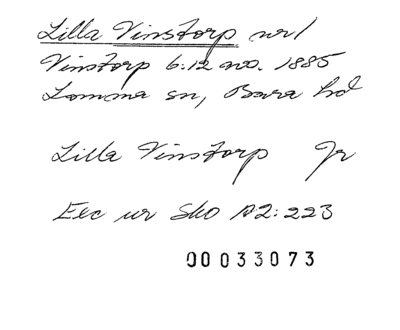 Lilla Vinstorp nr 1
Vinstorp 6:12 no. 1885
Lomma sn, Bara hd
Lilla Vinstorp Jr
Exc ur Sko A2:223
00033073